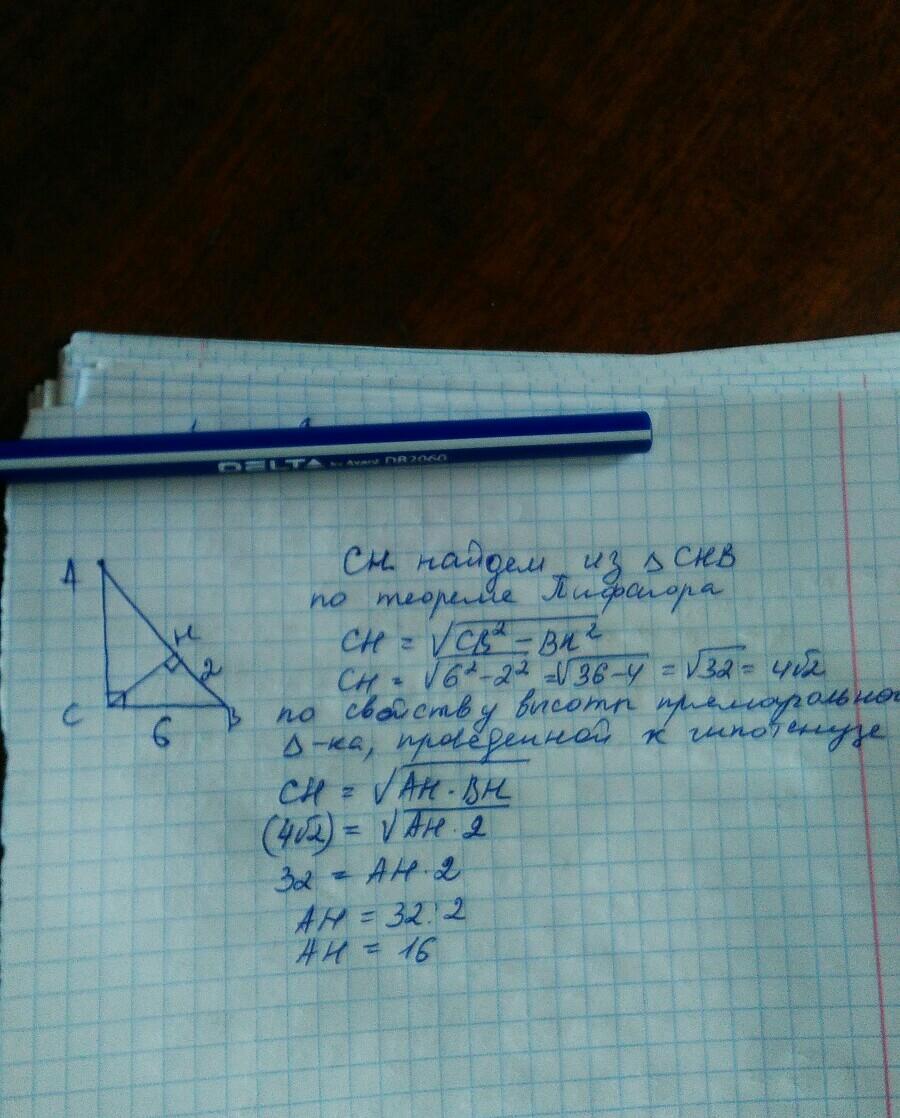 DELTA by Axent DB2060
A
H
2
C
6
B
CH найдем из △CHB
по теореме Пифагора
CH = √CB² - BH²
CH = √6²-2² = √36-4 = √32 = 4√2
по свойству высоты прямоугольного
△-ка, проведенной к гипотенузе
CH = √AH · BH
(4√2) = √AH · 2
32 = AH · 2
AH = 32:2
AH = 16